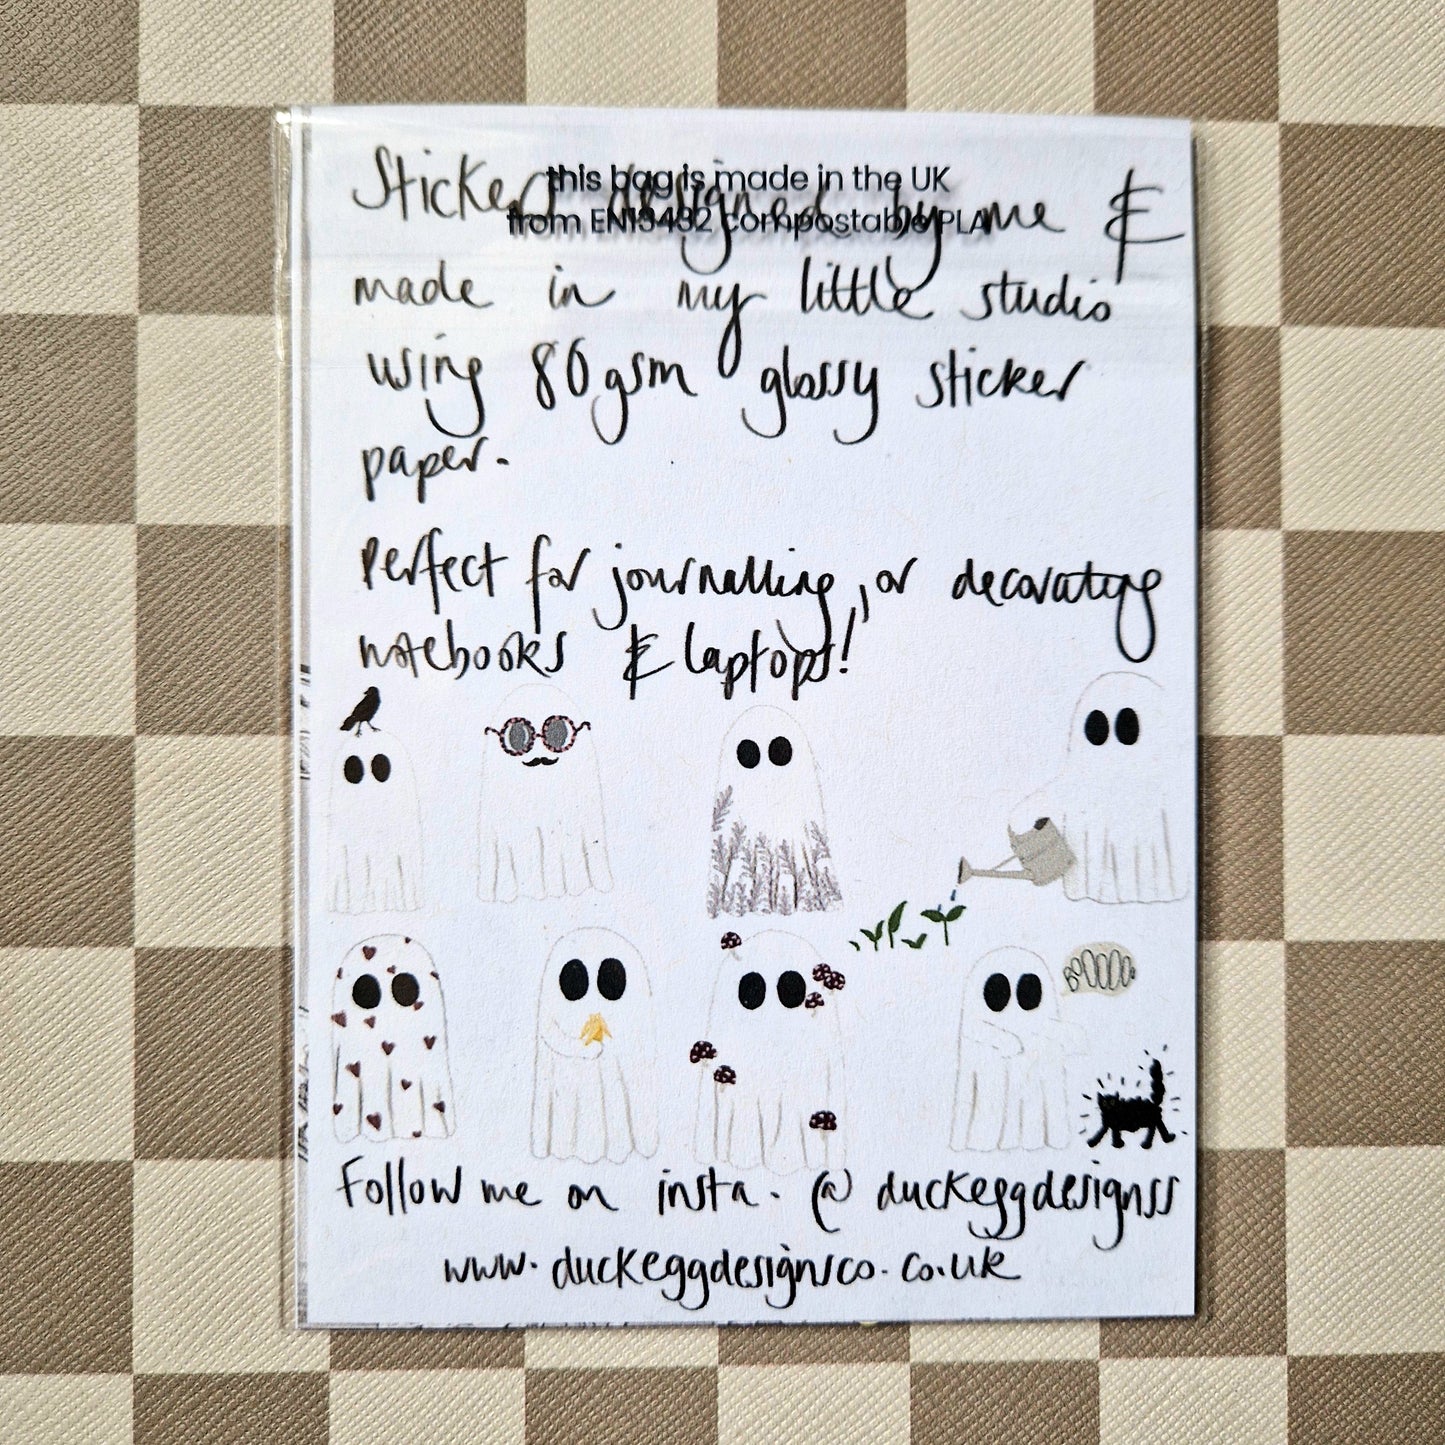 this bag is made in the UK
from EN13432 compostable PLA
Stickers designed by me &
made in my little studio
using 80gsm glossy sticker
paper.
Perfect for journalling, or decorating
notebooks & laptops!
BOOOOO
Follow me on insta. @duckeggdesignss
www.duckeggdesignsco.co.uk